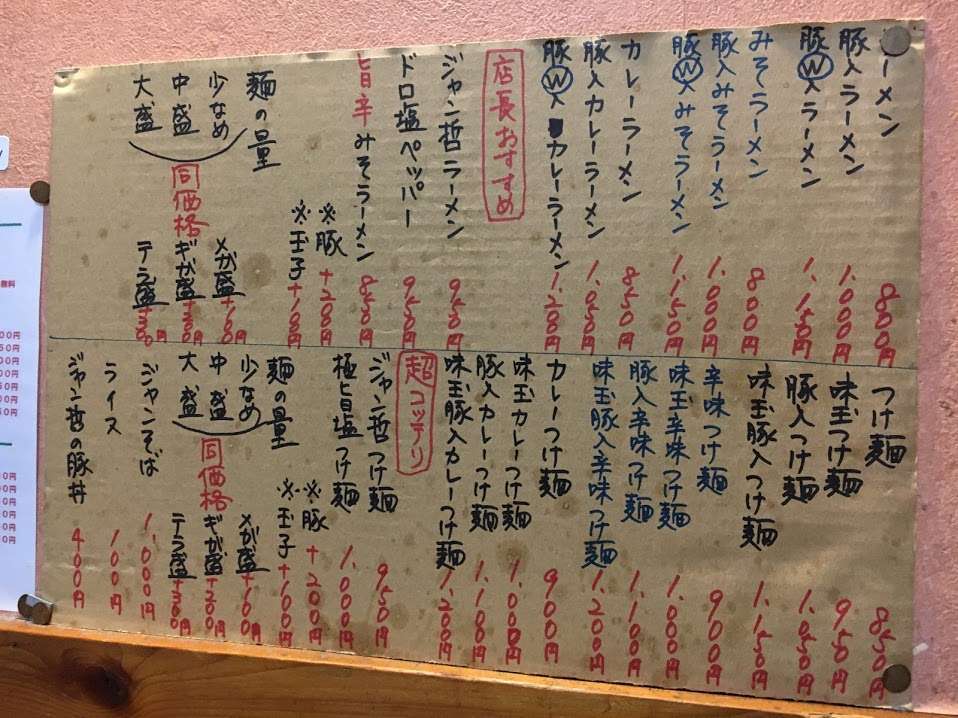 ーメン 800円
豚入ラーメン 1,000円
豚Ⓦ入ラーメン 1,150円
みそラーメン 800円
豚入みそラーメン 1,000円
豚Ⓦ入みそラーメン 1,150円
カレーラーメン 850円
豚入カレーラーメン 1,050円
豚Ⓦ入カレーラーメン 1,200円
店長おすすめ
ジャン哲ラーメン 950円
ドロ塩ペッパー 950円
旨辛みそラーメン 850円
※豚 +200円
※玉子 +100円
麺の量
少なめ
中盛
大盛
同価格
メガ盛+100円
ギガ盛+200円
テラ盛+300円
つけ麺 850円
味玉つけ麺 950円
豚入つけ麺 1,050円
味玉豚入つけ麺 1,150円
辛味つけ麺 900円
味玉辛味つけ麺 1,000円
豚入辛味つけ麺 1,100円
味玉豚入辛味つけ麺 1,200円
カレーつけ麺 900円
味玉カレーつけ麺 1,000円
豚入カレーつけ麺 1,100円
味玉豚入カレーつけ麺 1,200円
超コッテリ
ジャン哲つけ麺 950円
極旨塩つけ麺 1,000円
※豚 +200円
※玉子 +100円
麺の量
少なめ
中盛
大盛
同価格
メガ盛+100円
ギガ盛+200円
テラ盛+300円
ジャンそば 1,000円
ライス 100円
ジャン哲の豚丼 400円
無料